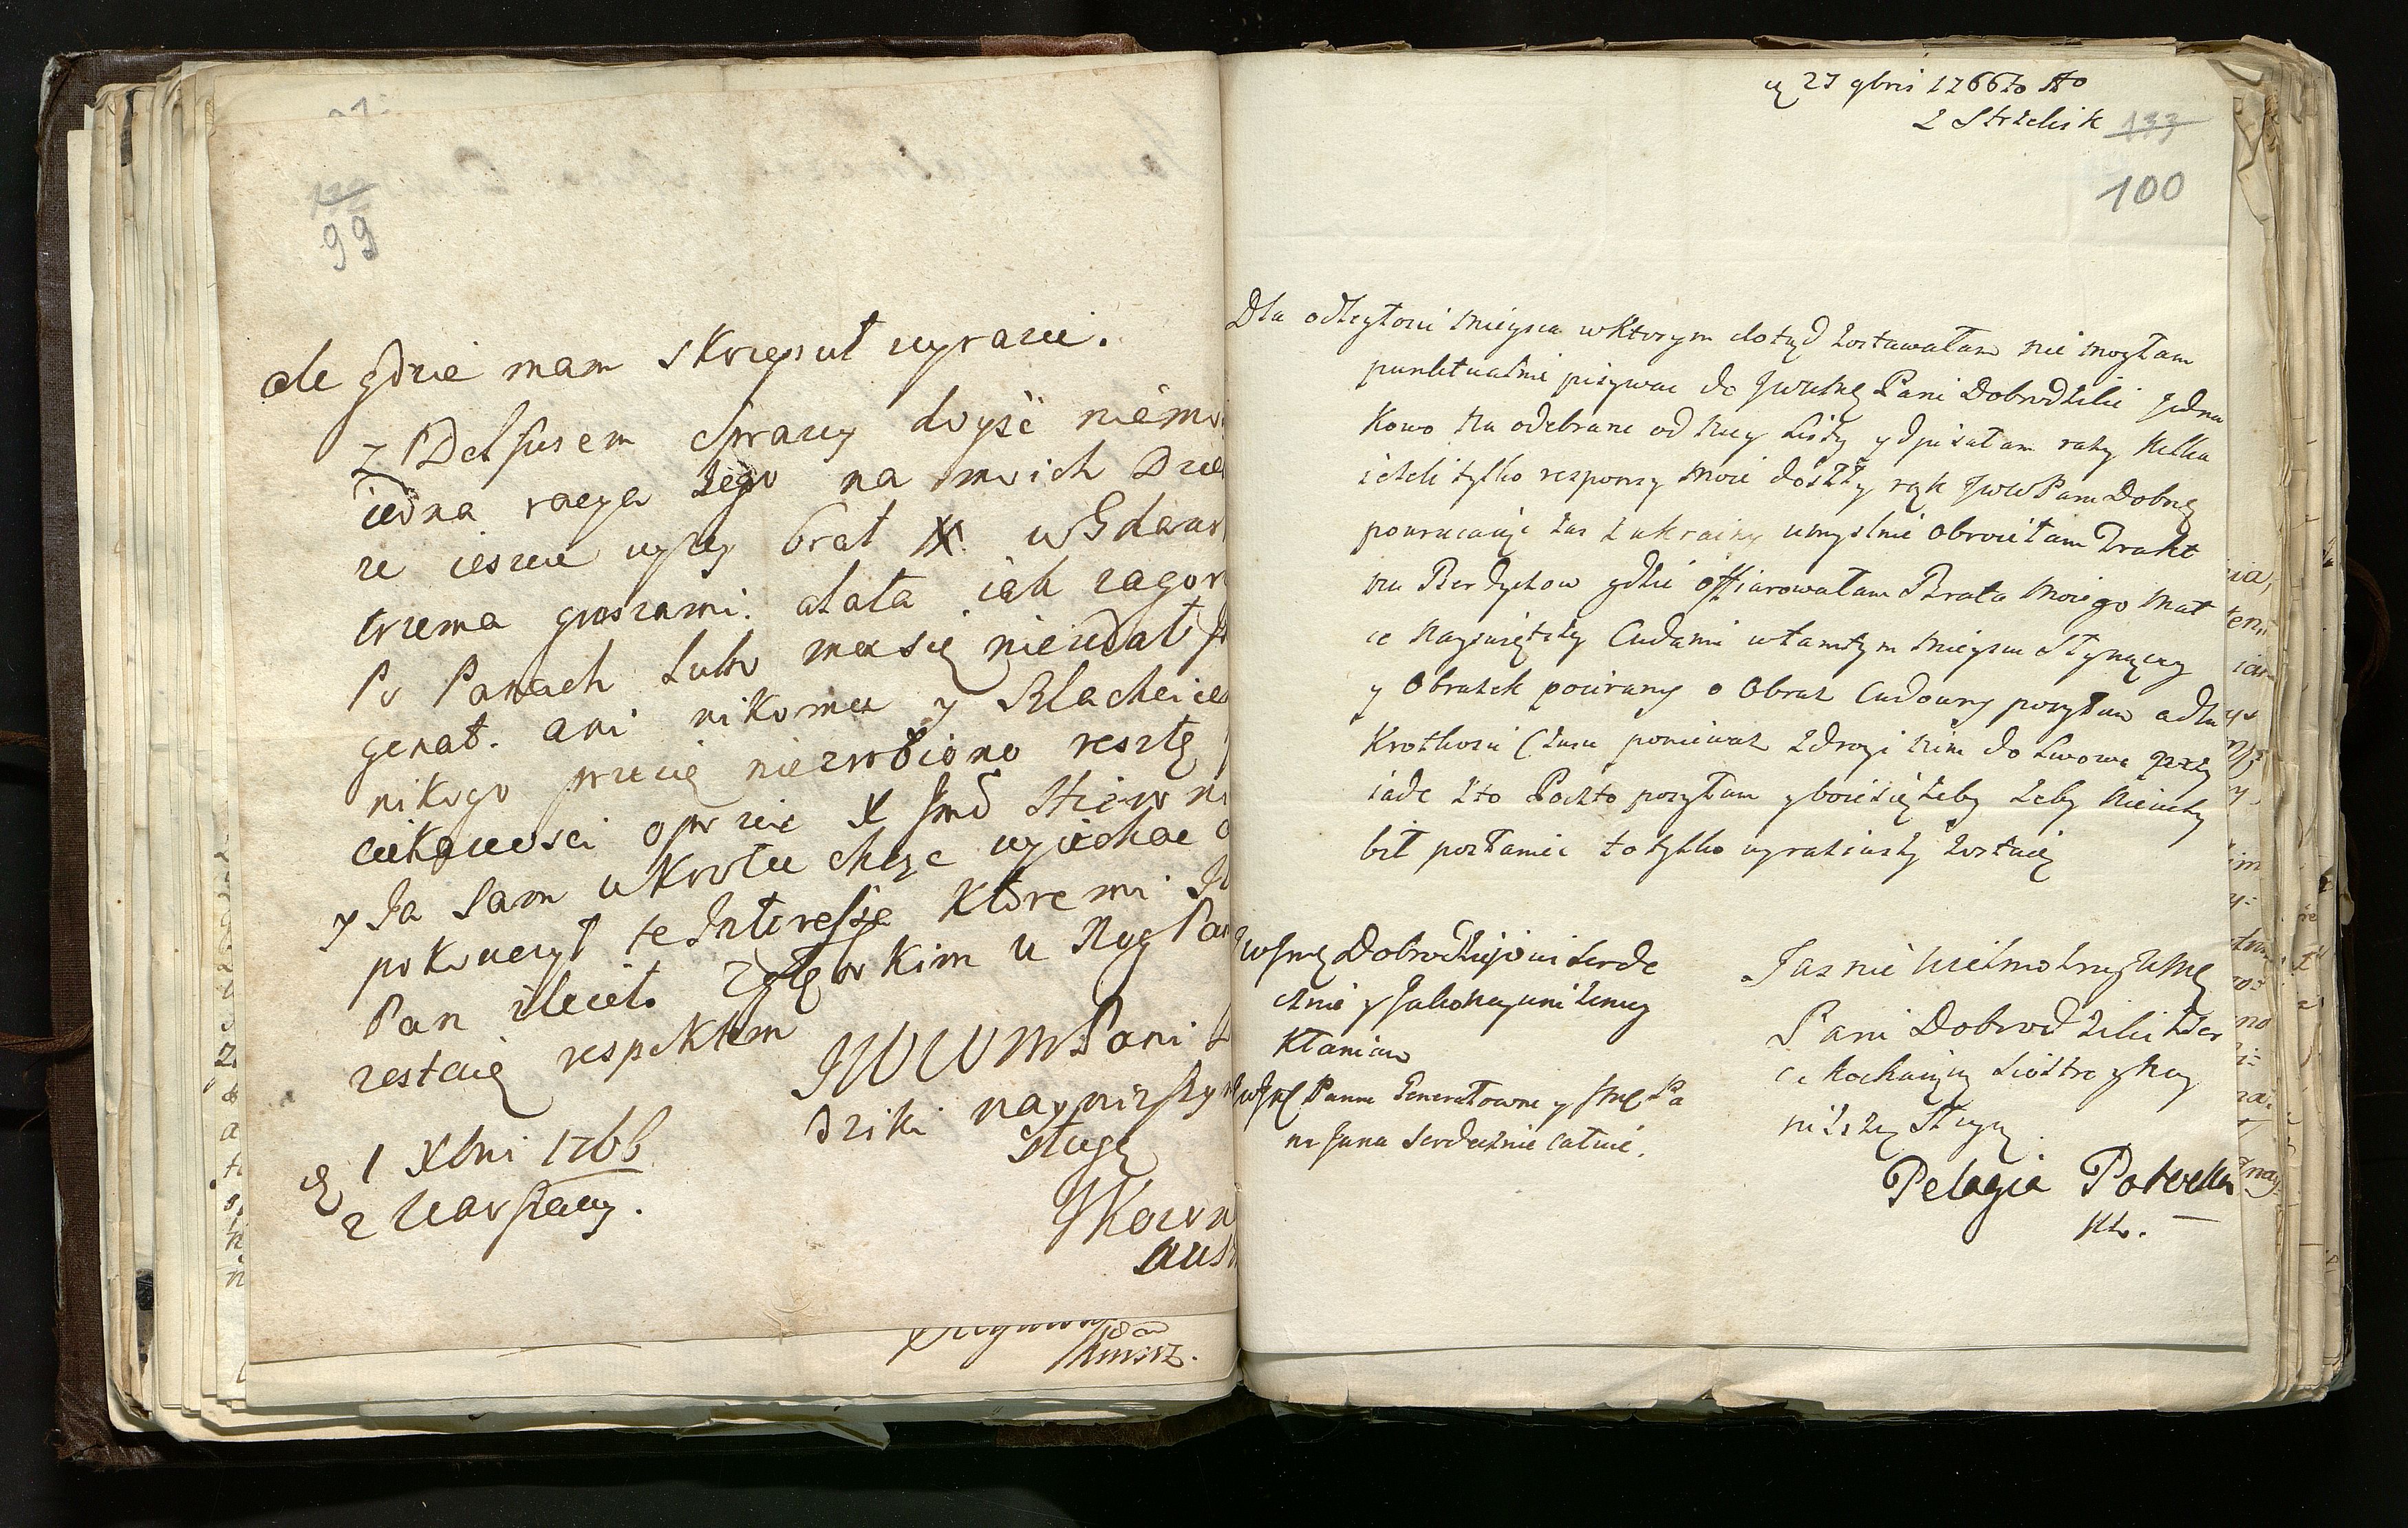 99
ale gdzie mam skrypuł wyrazić.
Z Delfusem sprawy dojść niemo
iedna racya tego na moich Dzie
ze ieszcze wyży brat X. w Gdans
trzema groszami. alata iak zagor
Po Panach Lubo mu się nieudał
genat. ani nikomu y Szlachcice
nikogo przecię niezrobiono resztę
ciekawosci oprzeć X Jmć Hiero
y Ja sam wkrotce chcąc wyiechać
pokonczył te Interessa które mi
Pan zlecił. z głębokim u Nog Pan
zostaię respektem
JWWMPani
dziki nayniższym
Sługą
d 1 Xbri 1766
z Warszawy.
d 27 9bris 1766to Ao
z Strzelisk
133
100
Dla odległosci mieysca wktorym dotąd zostawałam nie mogłam
punktualnie pisywać do Jwielmę Pani Dobrodziki Jedna
kowo na odebrane od niey Listy odpisałam razy kilka
ieżeli tylko responsy moie doszły rąk Jww Pani Dobrę
powracaiąc zas z ukrainy umyslnie obrociłam Trakt
na Berdychow gdzie offiarowałam Brata moiego Mat
ce Nayswiętszy Cudami wtamtym mieyscu słynący
y Obrazek pocierany o Obraz Cudowny posyłam a dla
krotkosci Czasu poniewaz z drogi nim do Lwowa przy
iadę z to Pocztą posyłam y boię się żeby żeby nieuchy
bił posłaniec to tylko wyraziwszy zostaię
Jwjmę Dobrodziejowi serde
cznie y Jako nayuniżeniey
Kłaniam
Jwjmę Panne Generałowne y Jmę Pa
na Jana serdecznie całuię.
Jasnie Wielmożney Jmę
Pani Dobrodziki Ser
ce kochaiącą siostrą y nay
niższą sługą
Pelagia Potocka
KL.